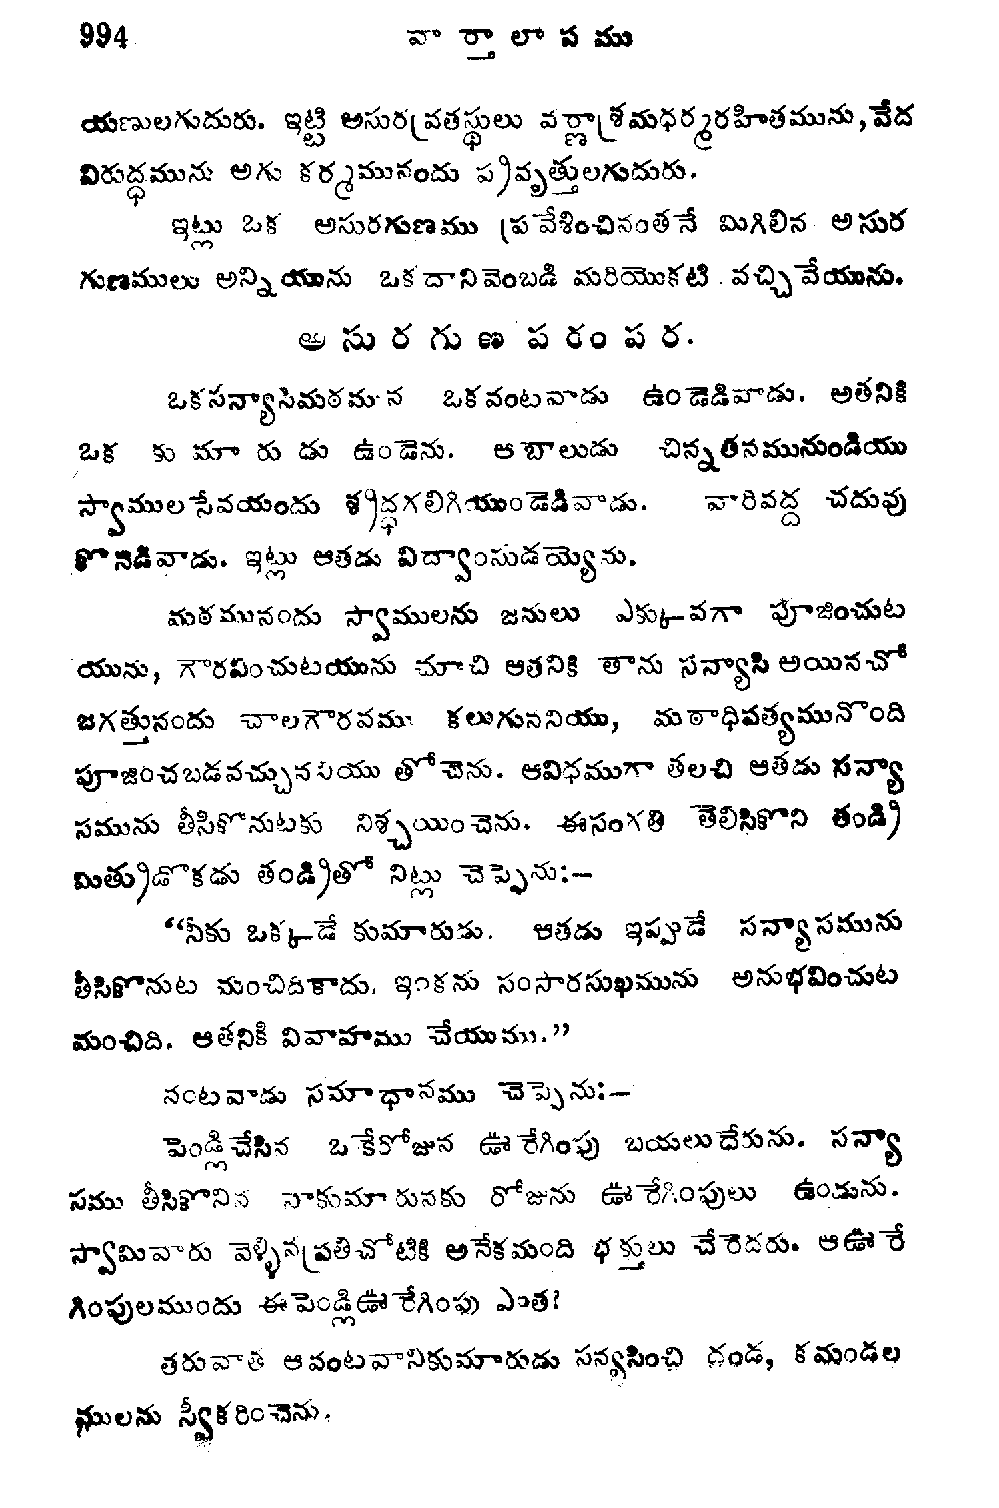 994 వార్తాలాపము
యణులగుదురు. ఇట్టి అసురవ్రతస్థులు వర్ణాశ్రమధర్మరహితమును, వేద
విరుద్ధమును అగు కర్మమునందు ప్రవృత్తులగుదురు.
ఇట్లు ఒక అసురగుణము ప్రవేశించినంతనే మిగిలిన అసుర
గుణములు అన్నియును ఒకదానివెంబడి మరియొకటి వచ్చివేయును.
అసురగుణపరంపర.
ఒకసన్యాసిమఠమున ఒకవంటవాడు ఉండెడివాడు. అతనికి
ఒక కుమారుడు ఉండెను. ఆబాలుడు చిన్నతనమునుండియు
స్వాములసేవయందు శ్రద్ధగలిగియుండెడివాడు. వారివద్ద చదువు
కొనెడివాడు. ఇట్లు ఆతడు విద్వాంసుడయ్యెను.
మఠమునందు స్వాములను జనులు ఎక్కువగా పూజించుట
యును, గౌరవించుటయును చూచి ఆతనికి తాను సన్యాసి అయినచో
జగత్తునందు చాలగౌరవము కలుగుననియు, మఠాధిపత్యమునొంది
పూజించబడవచ్చుననియు తోచెను. ఆవిధముగా తలచి ఆతడు సన్యా
సమును తీసికొనుటకు నిశ్చయించెను. ఈసంగతి తెలిసికొని తండ్రి
మిత్రుడొకడు తండ్రితో నిట్లు చెప్పెను:—
“నీకు ఒక్కడే కుమారుడు. ఆతడు ఇప్పుడే సన్యాసమును
తీసికొనుట మంచిదికాదు. ఇంకను సంసారసుఖమును అనుభవించుట
మంచిది. ఆతనికి వివాహము చేయుము.”
వంటవాడు సమాధానము చెప్పెను:—
పెండ్లిచేసిన ఒకేరోజున ఊరేగింపు బయలుదేరును. సన్యా
సము తీసికొనిన నాకుమారునకు రోజును ఊరేగింపులు ఉండును.
స్వామివారు వెళ్ళినప్రతిచోటికి అనేకమంది భక్తులు చేరెదరు. ఆఊరే
గింపులముందు ఈపెండ్లిఊరేగింపు ఎంత?
తరువాత ఆవంటవానికుమారుడు సన్యసించి దండ, కమండల
ములను స్వీకరించెను.